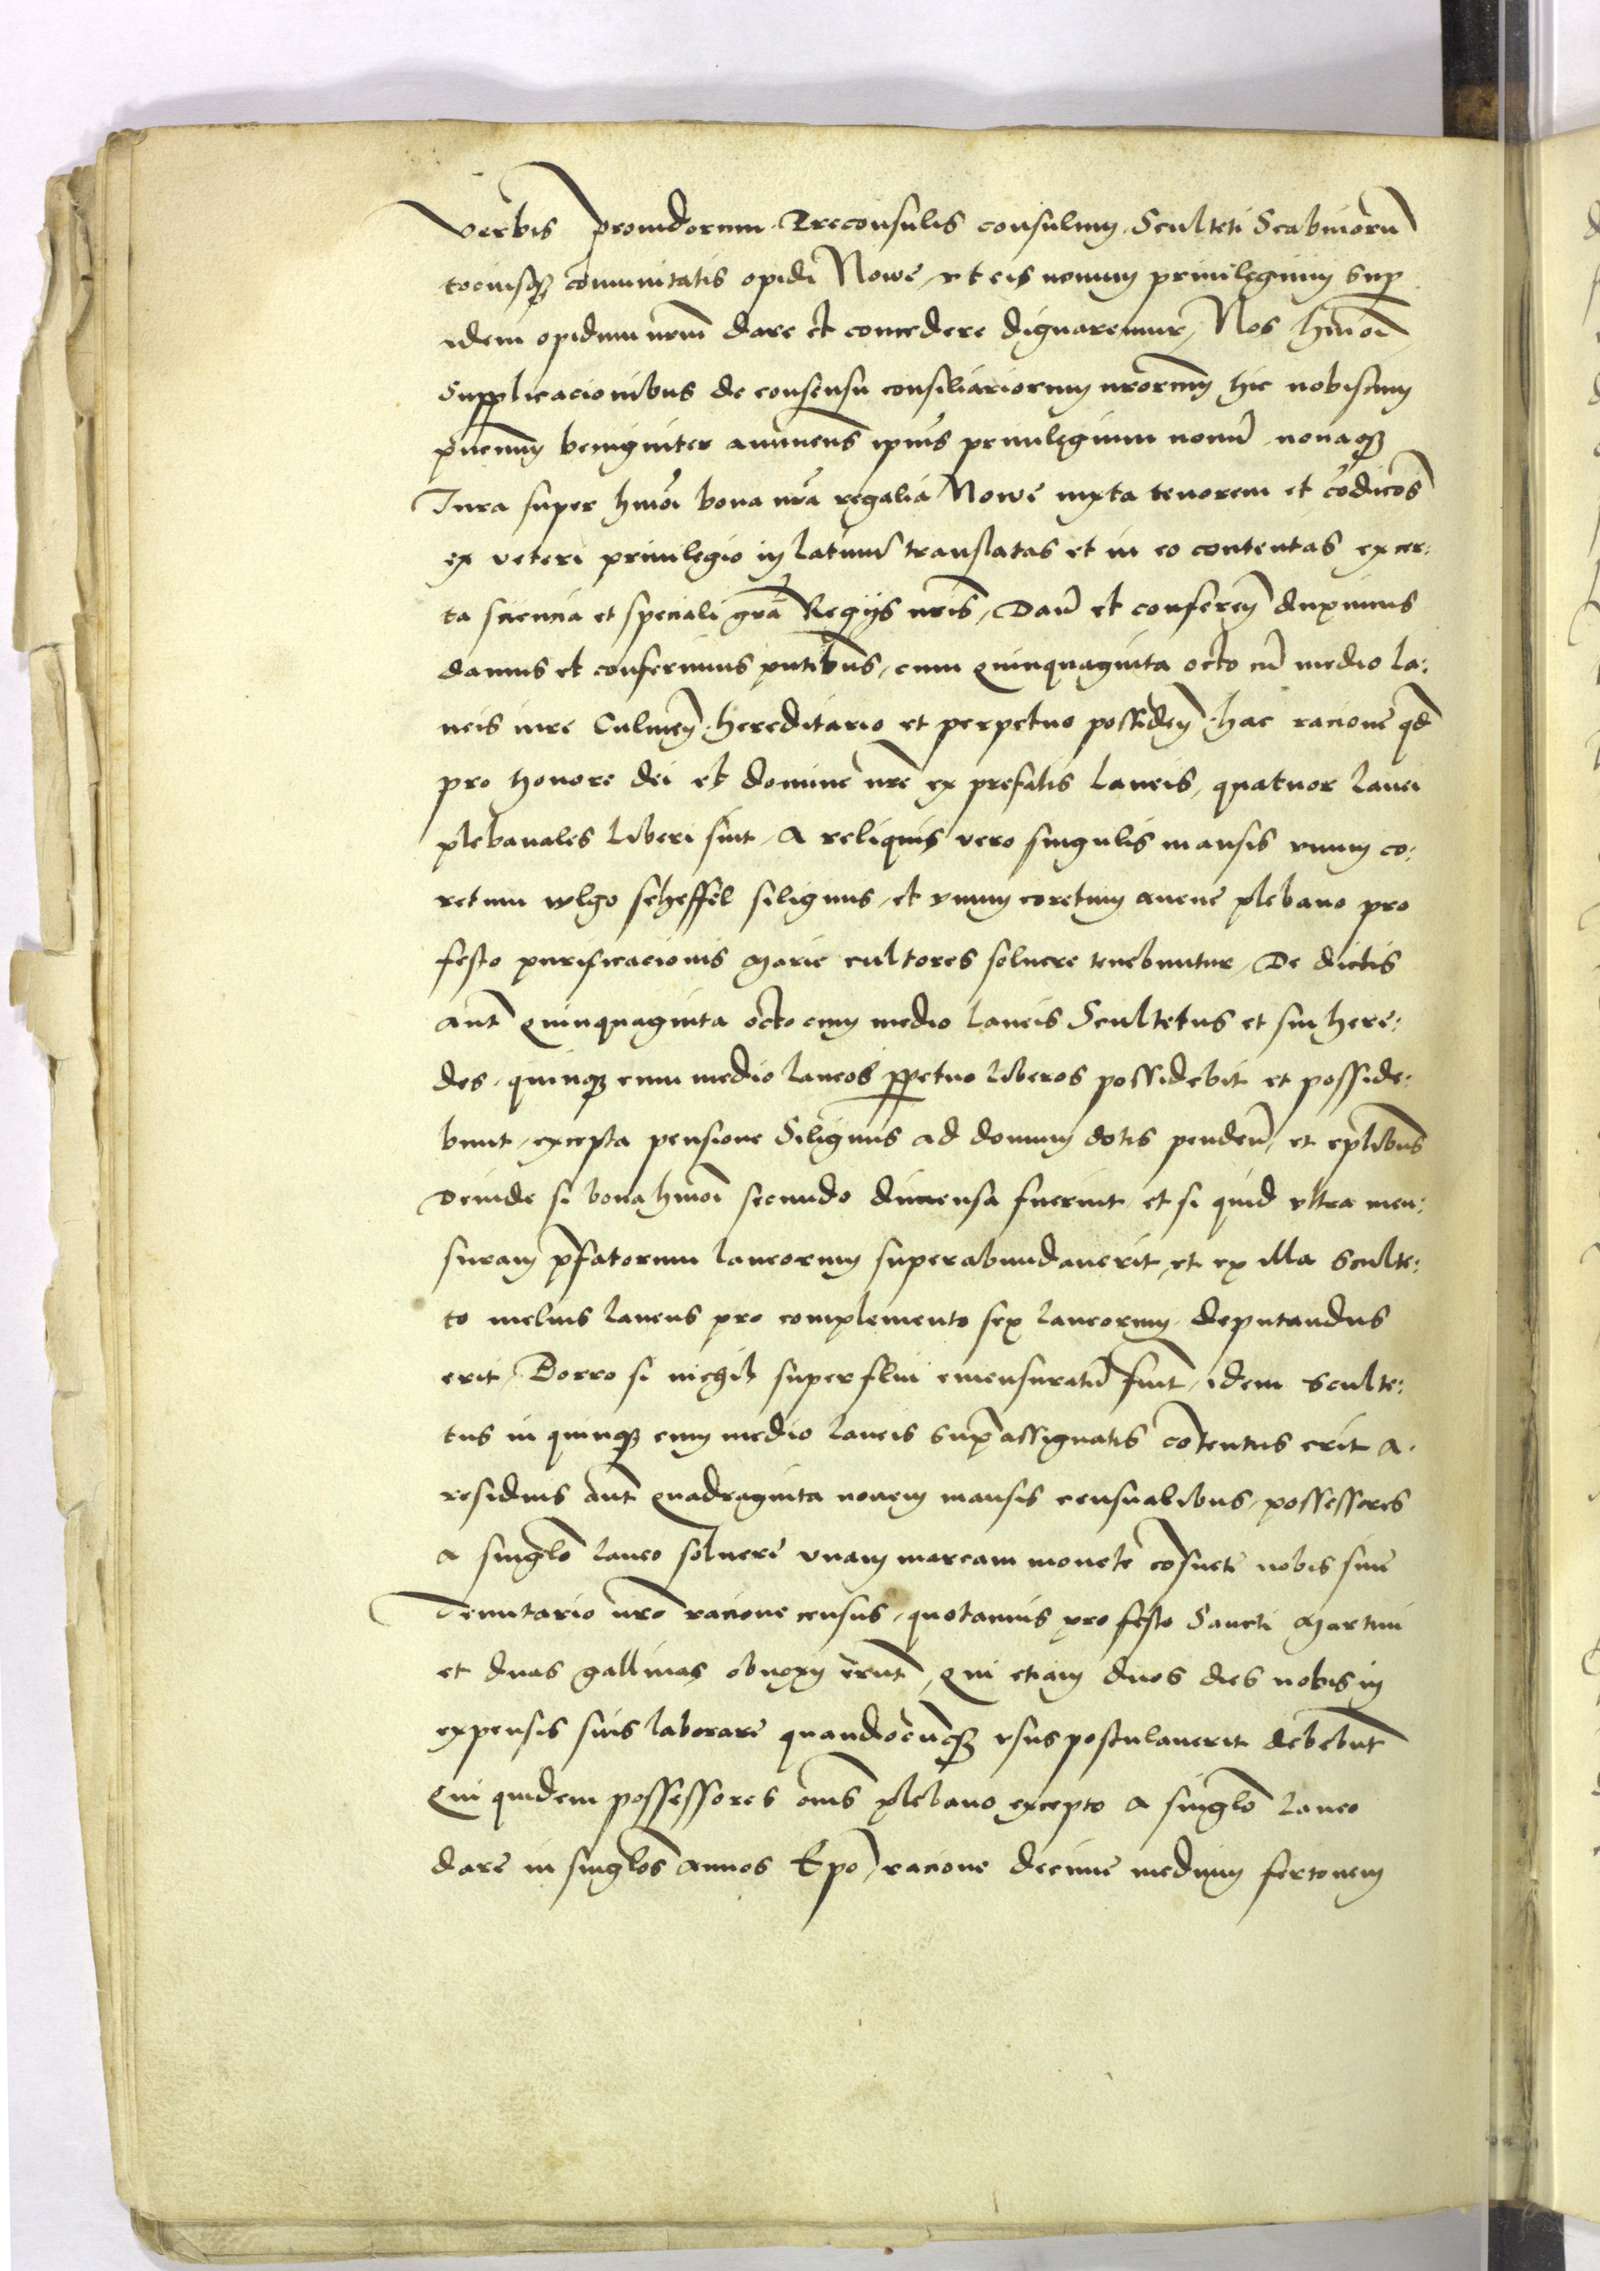 verbis prouidorum Preconsulis consulum Sculteti Scabinorū
tociusq̃ comunitatis opidi Nowe, vt eis nouum priuilegium sup̱
idem opidum nr̄m dare et concedere dignaremur, Nos hm̄oi
Supplicacionibus de consensu consiliariorum nr̄orum hic nobiscum
benigniter annuens̄ ip̄is priuilegium nouū nouaq̃
Iura super hm̄oi bona nr̄a regalia Nowe iuxta tenorem et cōdicōes
ex veteri priuilegio in latinū translatas et in eo contentas ex cer:
ta sciencia et speciali gr̄a Regijs nr̄is, Dan̄ et conferen̄ duximus
damus et conferimus pn̄tibus, cum quinquaginta octo cū medio la:
neis iure Culmen̄ hereditario et perpetuo possiden̄, hac racione qđ
pro honore dei et domine nr̄e ex prefatis laneis, quatuor lanei
plebanales liberi sint, A reliquis vero singulis mansis vnum co:
retum wlgo scheffel siliginis, et vnum coretum auene plebano pro
festo purificacionis Marie cultores soluere tenebuntur, De dictis
aut̄ quinquaginta octo cum medio laneis Scultetus et sui here:
des, quinq̃ cum medio laneos p̱petuo liberos possidebit et posside:
bunt, excepta pensione Siliginis ad domum dotis penden̄, et
Deinde si bona hm̄oi secundo dimensa fuerint et si quid vltra men:
suram p̄fatorum laneorum superabundauerit, et ex illa Sculte:
to laneus pro complemento sex laneorum deputandus
erit, Porro si nichil superflui emensuratū fuit, idem Sculte:
tus in quinq̃ cum medio laneis sup̄ assignatis cōtentus erit A
residuis aut̄ quadraginta nouem mansis censualibus, possessores
a singl̄o laneo soluere vnam marcam monete cōsuete nobis siue
Tenutario nr̄o racione census, quotannis pro festo Sancti Martini
et duas gallinas obnoxij erunt, qui etiam duos dies nobis in
expensis suis laborare quandocūq̃ vsus postulauerit debebūt
Qui quidem possessores om̄s plebano excepto a singl̄o laneo
dare in singl̄os annos Ep̄o, racione decime medium fertonem